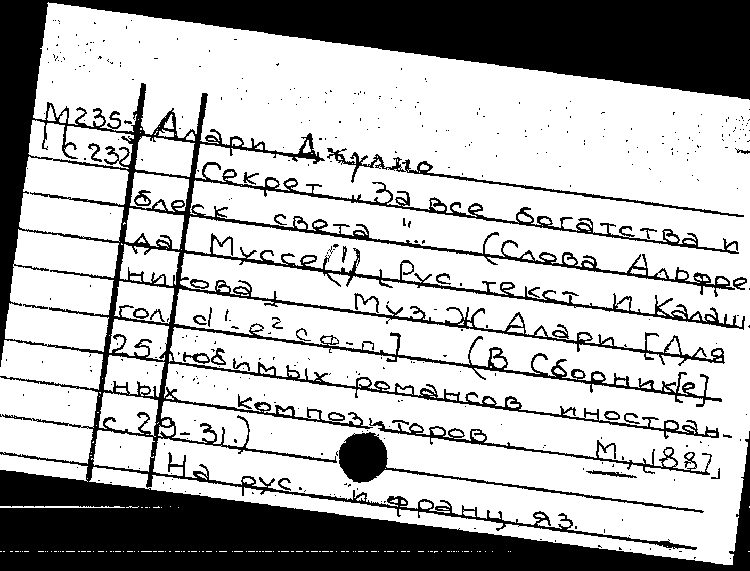 М235-3 Алари, Джулио
с.232
Секрет „За все богатства и
блеск света“... (Слова Альфре-
да Муссе(!) [Рус. текст. И. Калаш-
никова]. Муз. Ж. Алари. [Для
гол. d¹-e² с ф-п.] (В Сборник[е]
25 любимых романсов иностран-
ных композиторов. М., [188?],
с. 29-31.)
На рус. и франц. яз.